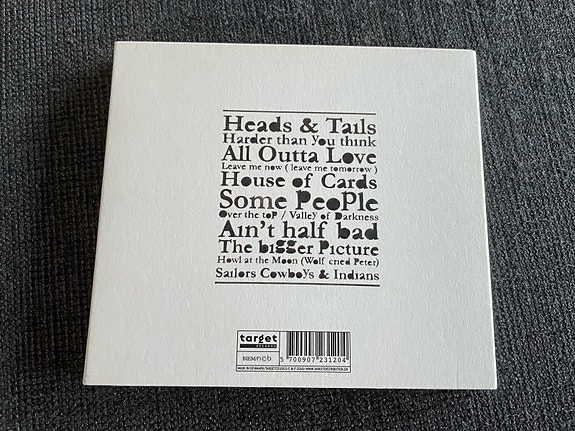 Heads & Tails
Harder than you think
All Outta Love
Leave me now ( leave me tomorrow )
House of Cards
Some People
Over the top / Valley of Darkness
Ain't half bad
The bigger Picture
Howl at the Moon (Wolf cried Peter)
Sailors Cowboys & Indians
target
records
BIEM ncb
5 700907 231204